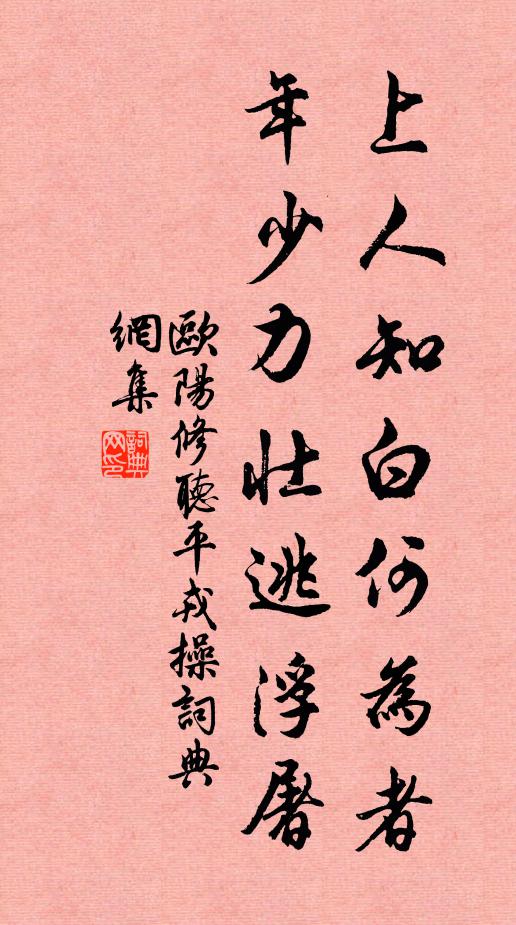 上人知白何為者
年少力壯逃浮屠
歐陽修聽平戎操詞典
網集
詞典網印